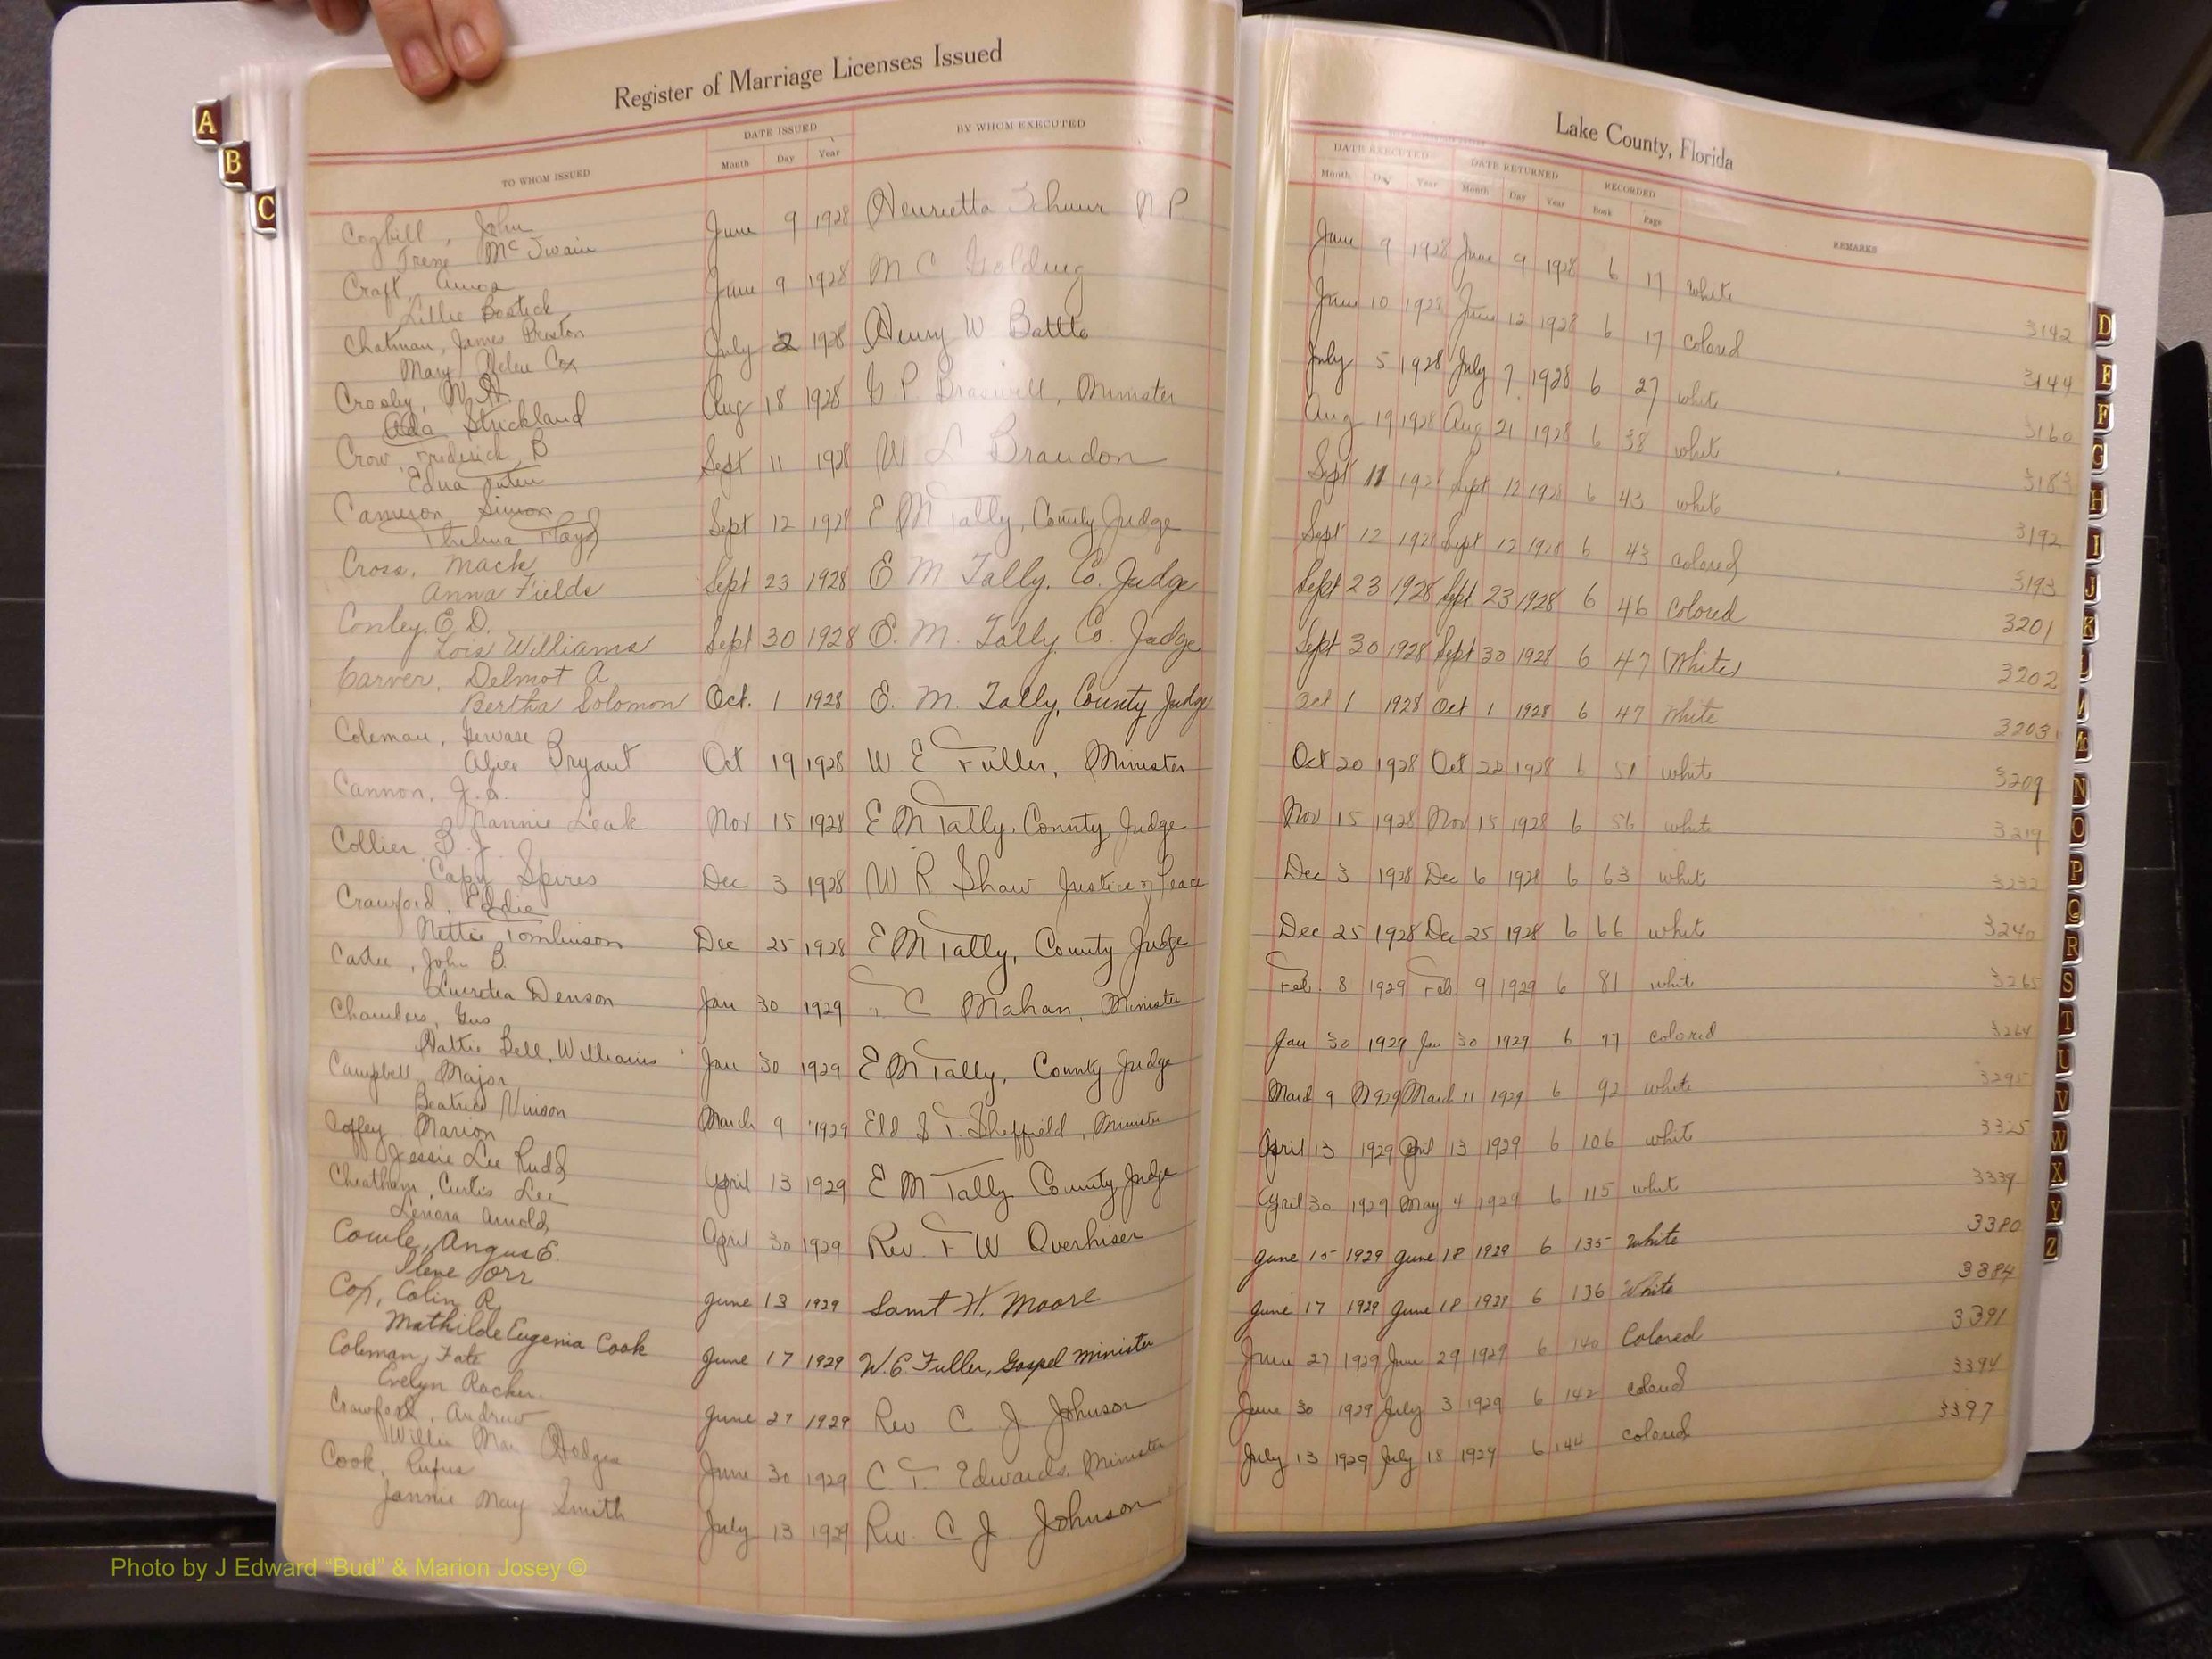 Register of Marriage Licenses Issued
TO WHOM ISSUED
DATE ISSUED
Month Day Year
BY WHOM EXECUTED
Cogbill, John
Irene McSwain
June 9 1928 Henrietta Schuur N P
Craft, Amos
Lillie Bostick
June 9 1928 M C Golding
Chatman, James Preston
Mary Helen Cox
July 2 1928 Henry W Battle
Crosby, W. H.
Ada Strickland
Aug 18 1928 G P Braswell, Minister
Crow, Frederick B
Edna
Sept 11 1928 W L Brandon
Cameron Simon
Thelma Floyd
Sept 12 1928 E M Tally, County Judge
Cross, Mack
Anna Fields
Sept 23 1928 E M Tally, Co. Judge
Conley, E. D.
Lois Williams
Sept 30 1928 E. M. Tally Co. Judge
Carver, Delmot A.
Bertha Solomon
Oct. 1 1928 E. M. Tally, County Judge
Coleman, Gervase
Alice Bryant
Oct 19 1928 W E Fuller, Minister
Cannon, J.
Nannie Leak
Nov 15 1928 E M Tally, County Judge
Collier B J
Capy Spires
Dec 3 1928 W R Shaw Justice of Peace
Crawford, Eddie
Nettie Tomlinson
Dec 25 1928 E M Tally, County Judge
Carter, John B.
Lucretia Denson
Jan 30 1929 C Mahan, Minister
Chambers, Gus
Hattie Bell Williams
Jan 30 1929 E M Tally, County Judge
Campbell, Major
Beatrice Vinson
March 9 1929 Eld S T. Sheffield, Minister
Coffey Marion
Jessie Lee Rudd
April 13 1929 E M Tally County Judge
Cheatham, Curtis Lee
Lenora Arnold
April 30 1929 Rev. F W Overhiser
Cowle, Angus E.
Ilene Orr
June 13 1929 Saml H. Moore
Cox, Colin R.
Mathilde Eugenia Cook
June 17 1929 W. E. Fuller, Gospel Minister
Coleman, Fate
Evelyn Racker
June 27 1929 Rev C J Johnson
Crawford, Andrew
Willie Mae Hodges
June 30 1929 C. T. Edwards, Minister
Cook, Rufus
Jannie May Smith
July 13 1929 Rev. C J Johnson
Lake County, Florida
DATE EXECUTED
Month Day Year
DATE RETURNED
Month Day Year
RECORDED
Book Page
REMARKS
June 9 1928 June 9 1928 6 17 white 3142
June 10 1928 June 12 1928 6 17 colored 3144
July 5 1928 July 7 1928 6 27 white 3160
Aug 19 1928 Aug 21 1928 6 38 white 3183
Sept 11 1928 Sept 12 1928 6 43 white 3192
Sept 12 1928 Sept 12 1928 6 43 colored 3193
Sept 23 1928 Sept 23 1928 6 46 Colored 3201
Sept 30 1928 Sept 30 1928 6 47 (White) 3202
Oct 1 1928 Oct 1 1928 6 47 White 3203
Oct 20 1928 Oct 22 1928 6 51 white 3209
Nov 15 1928 Nov 15 1928 6 56 white 3219
Dec 3 1928 Dec 6 1928 6 63 white 3232
Dec 25 1928 Dec 25 1928 6 66 white 3240
Feb. 8 1929 Feb 9 1929 6 81 white 3265
Jan 30 1929 Jan 30 1929 6 77 colored 3264
March 9 1929 March 11 1929 6 92 white 3295
April 13 1929 April 13 1929 6 106 white 3325
April 30 1929 May 4 1929 6 115 white 3339
June 15 1929 June 18 1929 6 135 White 3380
June 17 1929 June 18 1929 6 136 White 3384
June 27 1929 June 29 1929 6 140 Colored 3391
June 30 1929 July 3 1929 6 142 colored 3394
July 13 1929 July 18 1929 6 144 colored 3397
A
B
C
D
E
F
G
H
I
J
K
L
M
Mc
N
O
P
Q
R
S
T
U
V
W
X
Y
Z
Photo by J Edward “Bud” & Marion Josey ©